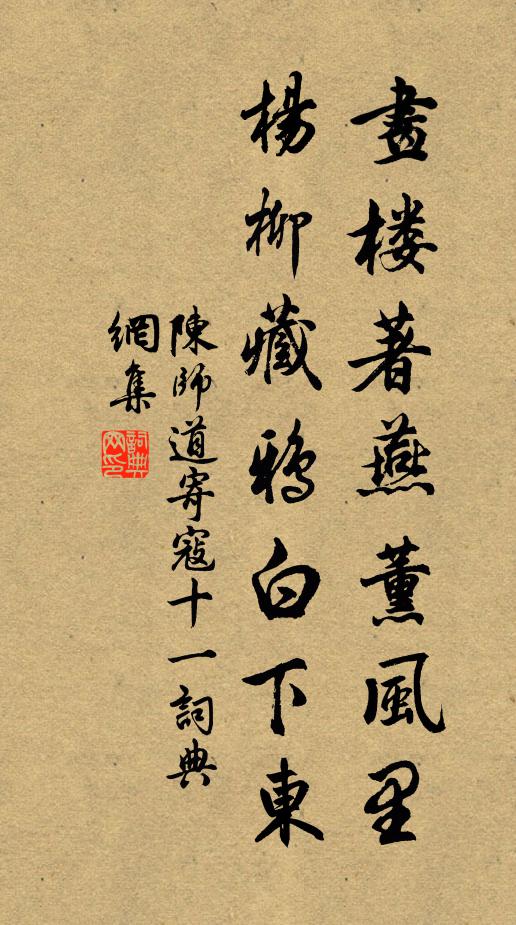 畫楼著燕薰風里
楊柳藏鴉白下東
陳師道寄寇十一詞典
網集
詞典網印